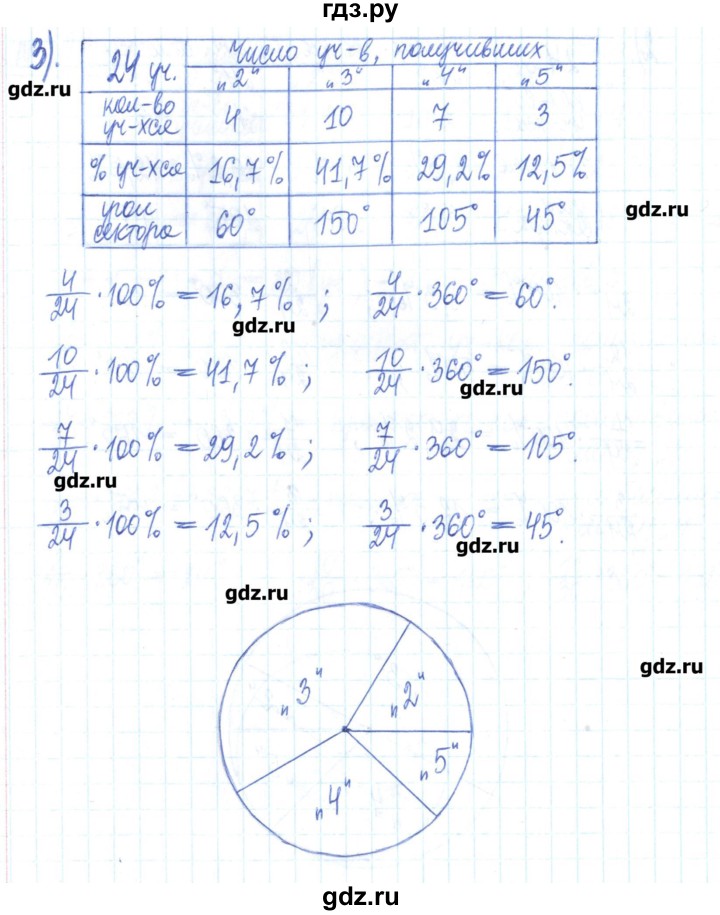 гдз.ру
3).
24 уч. Число уч-в, получивших
„2“ „3“ „4“ „5“
gdz.ru
кол-во уч-хся 4 10 7 3
% уч-хся 16,7% 41,7% 29,2% 12,5%
угол сектора 60° 150° 105° 45°
gdz.ru
4/24 · 100% = 16,7%; 4/24 · 360° = 60°.
gdz.ru
10/24 · 100% = 41,7%; 10/24 · 360° = 150°.
gdz.ru
7/24 · 100% = 29,2%; 7/24 · 360° = 105°.
gdz.ru
3/24 · 100% = 12,5%; 3/24 · 360° = 45°.
gdz.ru
gdz.ru
gdz.ru
„3“ „2“
„5“
„4“
gdz.ru